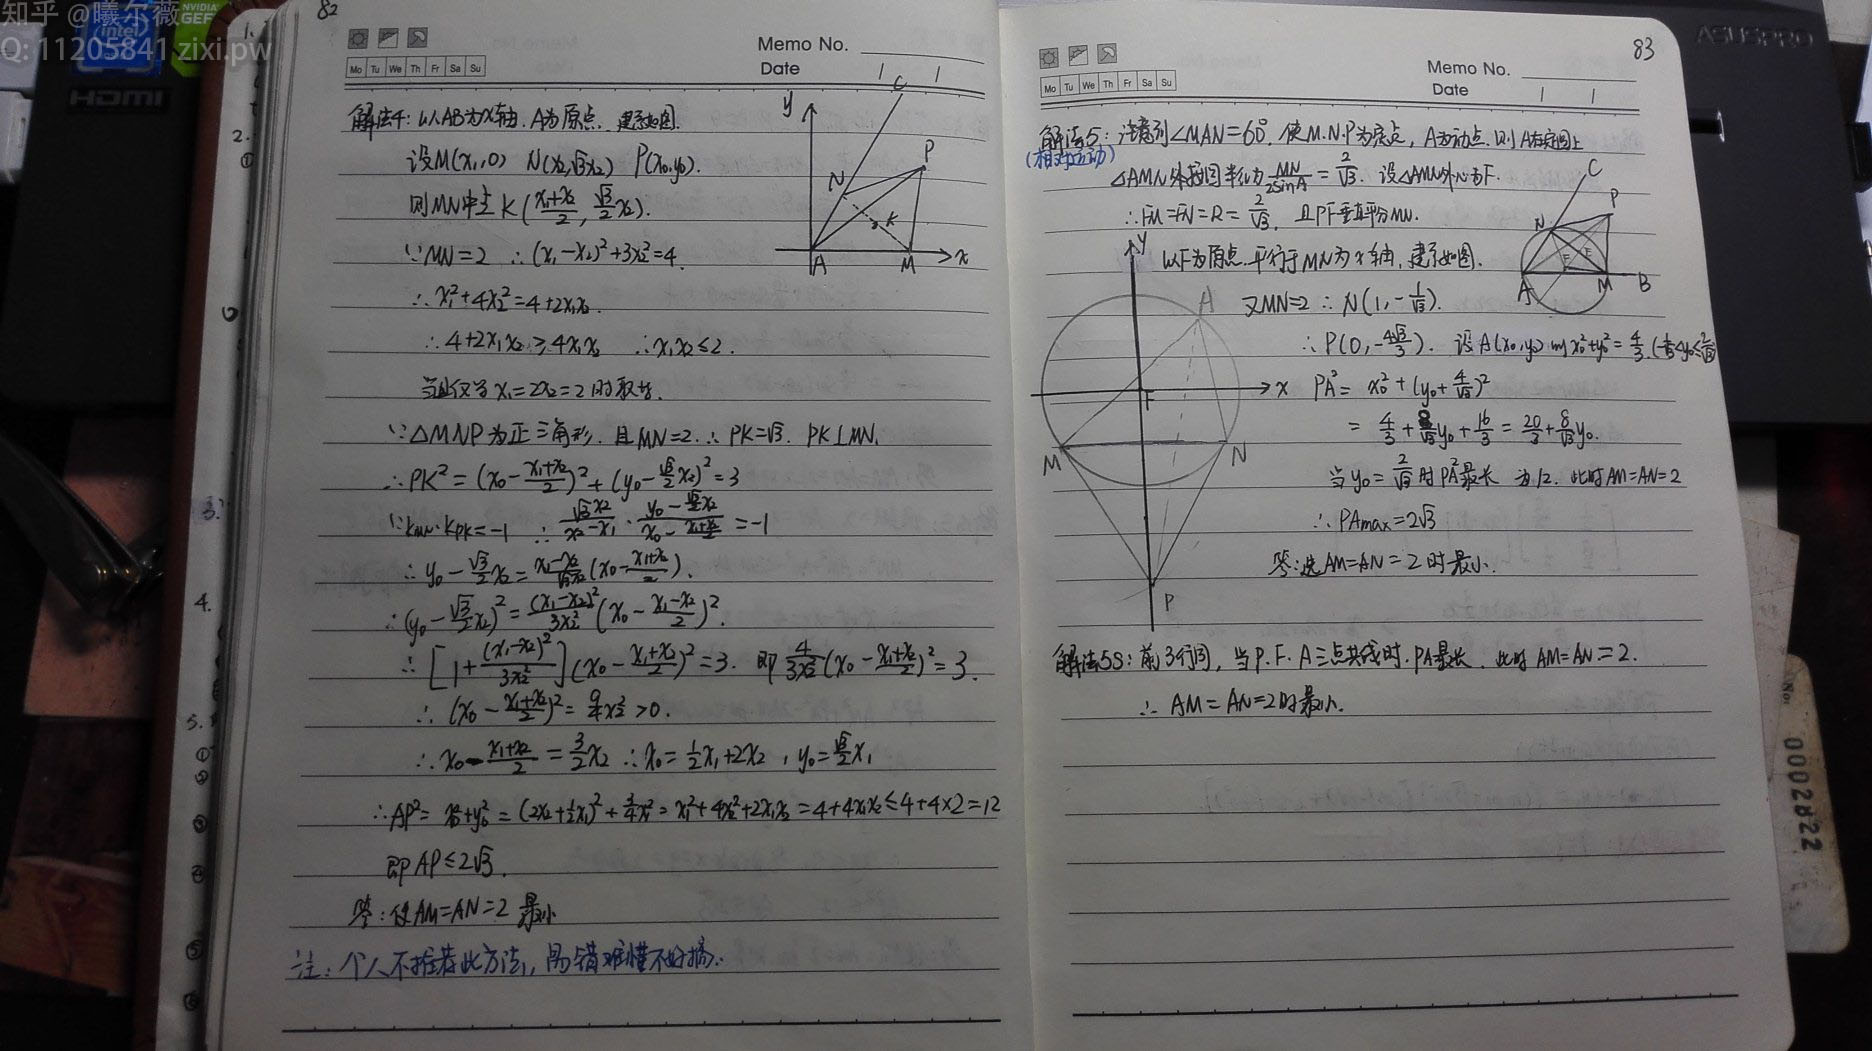 知乎 @曦尔薇
Q: 11205841 zixi.pw
intel
NVIDIA
GEF
HDMI
ASUSPRO
82
Memo No.
Mo Tu We Th Fr Sa Su
Date
解法4: 以AB为x轴. A为原点. 建系如图.
设M(x₁,0) N(x₂,√3x₂) P(x₀,y₀).
则MN中点K((x₁+x₂)/2, √3/2 x₂).
∵MN=2 ∴(x₁-x₂)²+3x₂²=4.
∴x₁²+4x₂²=4+2x₁x₂.
∴4+2x₁x₂≥4x₁x₂ ∴x₁x₂≤2.
当且仅当x₁=2x₂=2时取等.
∵△MNP为正三角形. 且MN=2. ∴PK=√3. PK⊥MN.
∴PK²=(x₀-(x₁+x₂)/2)²+(y₀-√3/2 x₂)²=3
∵kMN·kPK=-1 ∴ √3x₂/(x₂-x₁) · (y₀-√3/2 x₂)/(x₀-(x₁+x₂)/2) =-1
∴y₀-√3/2 x₂=(x₁-x₂)/(√3x₂) (x₀-(x₁+x₂)/2).
∴(y₀-√3/2 x₂)²=(x₁-x₂)²/(3x₂²) (x₀-(x₁-x₂)/2)².
∴[1+(x₁-x₂)²/(3x₂²)](x₀-(x₁+x₂)/2)²=3. 即 4/(3x₂²) (x₀-(x₁+x₂)/2)²=3.
∴(x₀-(x₁+x₂)/2)²=9/4 x₂²>0.
∴x₀-(x₁+x₂)/2=3/2 x₂ ∴x₀=1/2 x₁+2x₂, y₀=√3/2 x₁
∴AP²=x₀²+y₀²=(2x₂+1/2 x₁)²+3/4 x₁²=x₁²+4x₂²+2x₁x₂=4+4x₁x₂≤4+4×2=12
即AP≤2√3.
答: 使AM=AN=2 最小
注: 个人不推荐此方法, 易错难懂不好搞.
y
C
P
N
K
A
M
x
83
Memo No.
Mo Tu We Th Fr Sa Su
Date
解法5: 注意到∠MAN=60°. 使M.N.P为定点, A为动点. 则A在定圆上
(相对运动)
△AMN外接圆半径为 MN/(2sinA)=2/√3. 设△AMN外心为F.
∴FM=FN=R=2/√3. 且PF垂直平分MN.
以F为原点. 平行于MN为x轴, 建系如图.
又MN=2 ∴N(1,-1/√3).
∴P(0,-4√3/3). 设A(x₀,y₀) 则x₀²+y₀²=4/3.
PA²=x₀²+(y₀+4/√3)²
=4/3+8/√3 y₀+16/3=20/3+8/√3 y₀.
当y₀=2/√3时PA²最长 为12. 此时AM=AN=2
∴PAmax=2√3
答: 选AM=AN=2时最小.
解法5S: 前3行同, 当P.F.A三点共线时. PA最长. 此时AM=AN=2.
∴AM=AN=2时最小.
C
P
N
F
A
M
B
y
A
F
x
M
N
P
No.
0002822
2.
①
3.
4.
5.
①
②
③
④
⑤
⑥